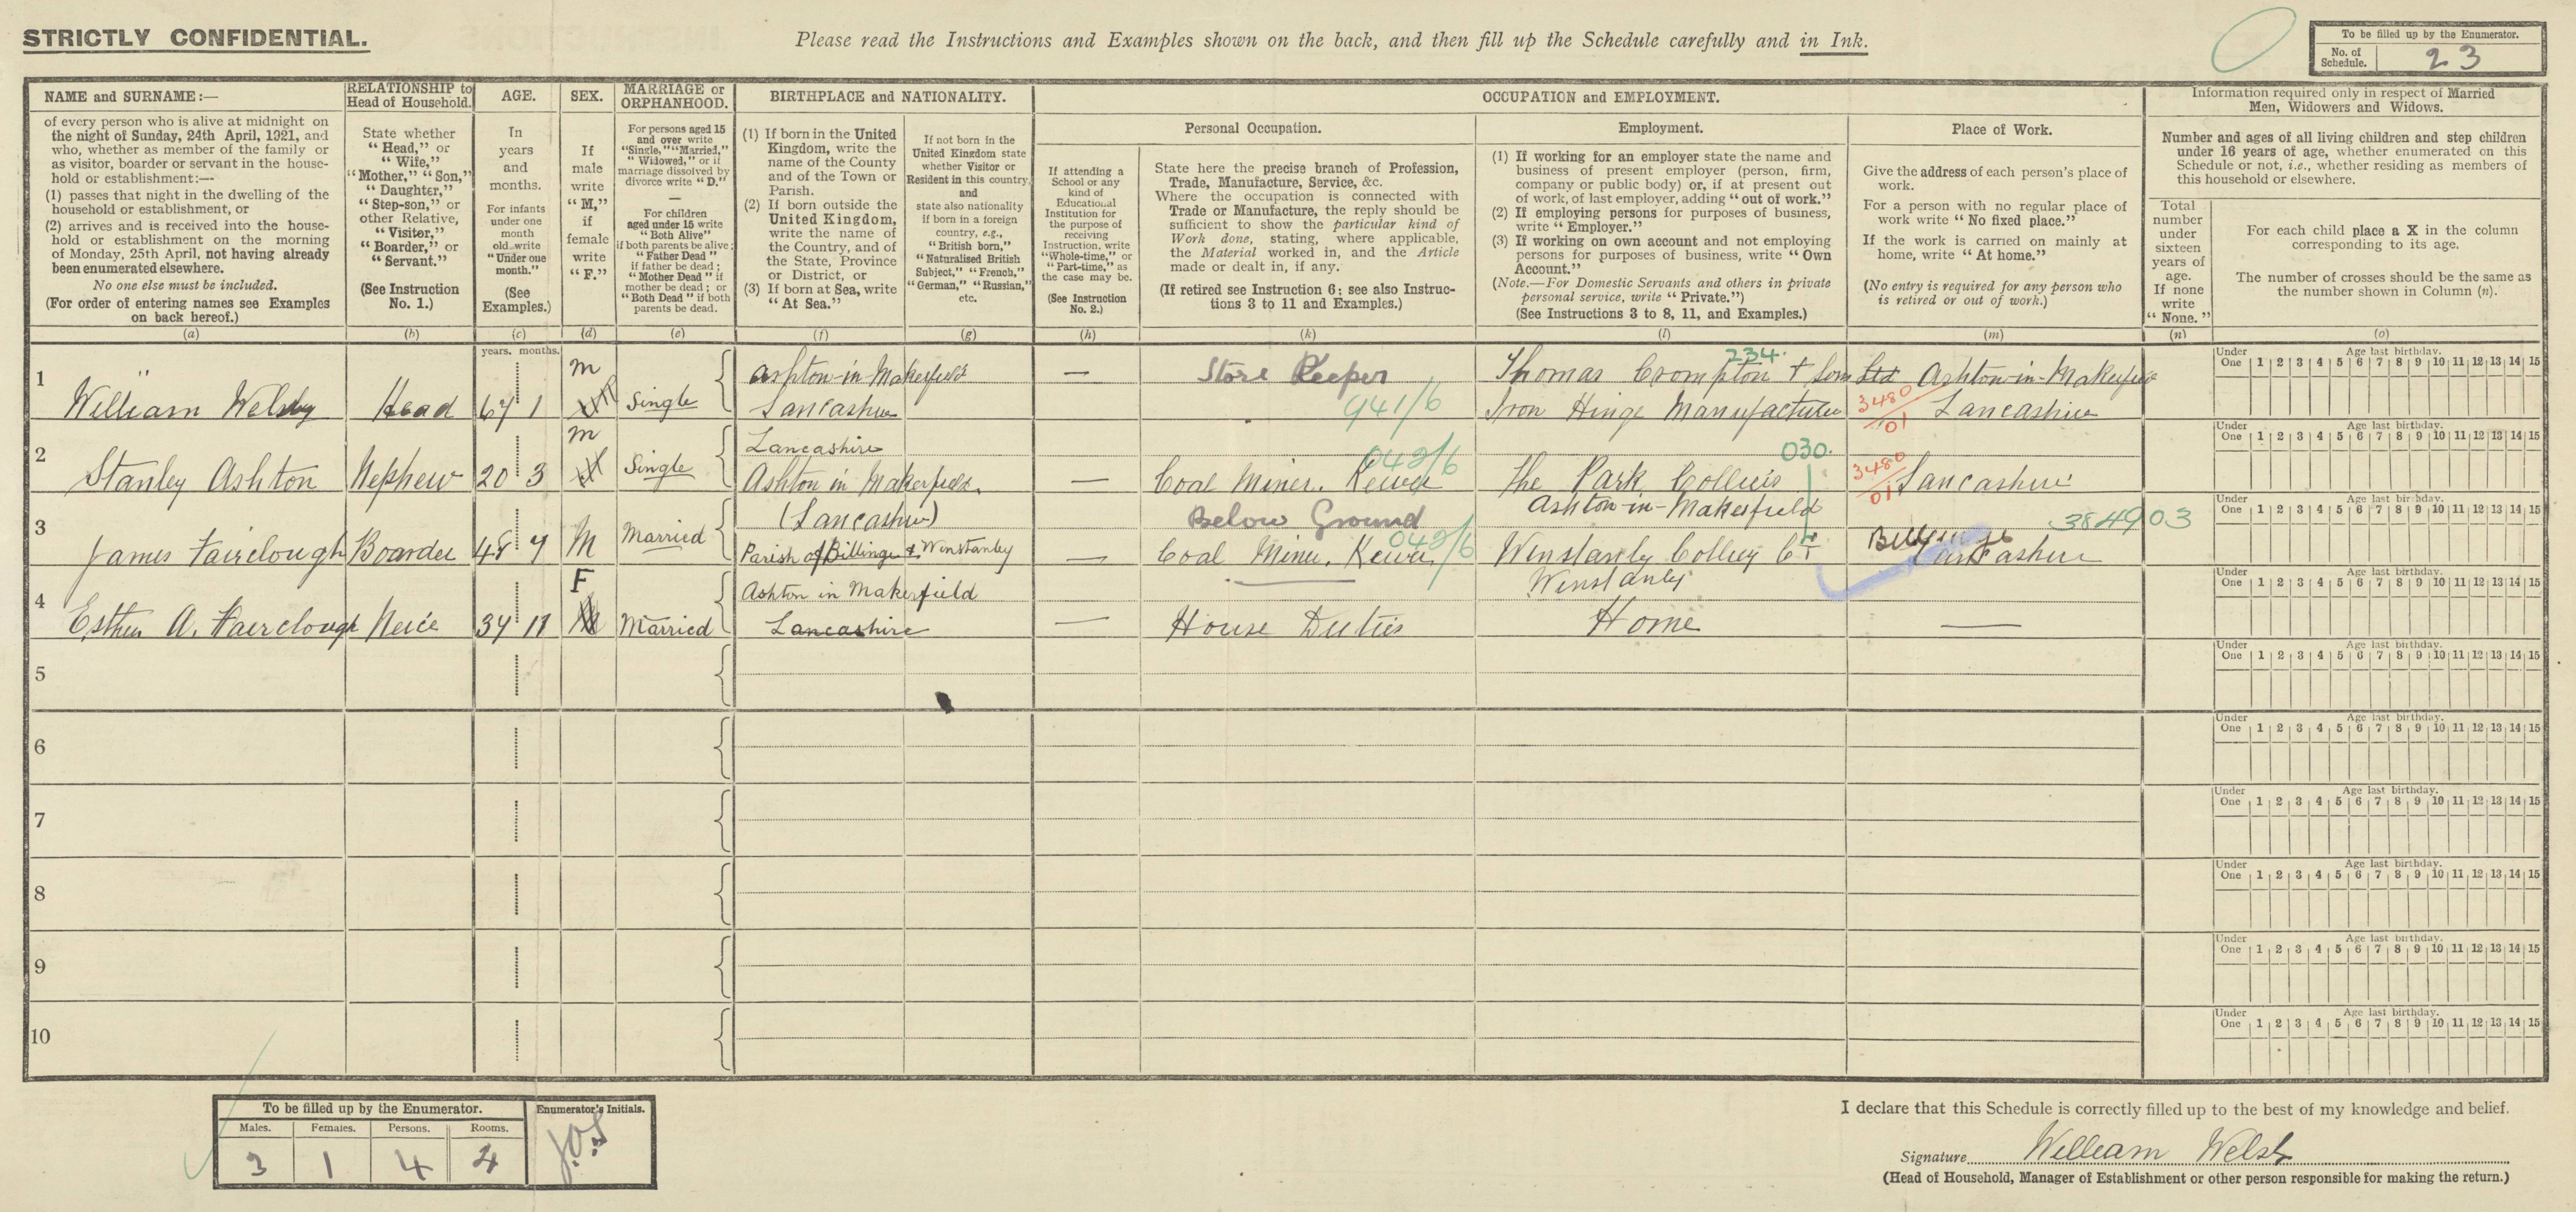 STRICTLY CONFIDENTIAL.
Please read the Instructions and Examples shown on the back, and then fill up the Schedule carefully and in Ink.
To be filled up by the Enumerator.
No. of Schedule. 23
NAME and SURNAME:—
of every person who is alive at midnight on
the night of Sunday, 24th April, 1921, and
who, whether as member of the family or
as visitor, boarder or servant in the house-
hold or establishment:—
(1) passes that night in the dwelling of the
household or establishment, or
(2) arrives and is received into the house-
hold or establishment on the morning
of Monday, 25th April, not having already
been enumerated elsewhere.
No one else must be included.
(For order of entering names see Examples
on back hereof.)
(a)
RELATIONSHIP to
Head of Household.
State whether
"Head," or
"Wife,"
"Mother," "Son,"
"Daughter,"
"Step-son," or
other Relative,
"Visitor,"
"Boarder," or
"Servant."
(See Instruction
No. 1.)
(b)
AGE.
In
years
and
months.
For infants
under one
month
old write
"Under one
month."
(See
Examples.)
(c)
SEX.
If
male
write
"M,"
if
female
write
"F."
(d)
MARRIAGE or
ORPHANHOOD.
For persons aged 15
and over write
"Single," "Married,"
"Widowed," or if
marriage dissolved by
divorce write "D."
—
For children
aged under 15 write
"Both Alive"
if both parents be alive;
"Father Dead"
if father be dead;
"Mother Dead" if
mother be dead; or
"Both Dead" if both
parents be dead.
(e)
BIRTHPLACE and NATIONALITY.
(1) If born in the United
Kingdom, write the
name of the County
and of the Town or
Parish.
(2) If born outside the
United Kingdom,
write the name of
the Country, and of
the State, Province
or District, or
(3) If born at Sea, write
"At Sea."
(f)
If not born in the
United Kingdom state
whether Visitor or
Resident in this country,
and
state also nationality
if born in a foreign
country, e.g.,
"British born,"
"Naturalised British
Subject," "French,"
"German," "Russian,"
etc.
(g)
OCCUPATION and EMPLOYMENT.
If attending a
School or any
kind of
Educational
Institution for
the purpose of
receiving
Instruction, write
"Whole-time," or
"Part-time," as
the case may be.
(See Instruction
No. 2.)
(h)
Personal Occupation.
State here the precise branch of Profession,
Trade, Manufacture, Service, &c.
Where the occupation is connected with
Trade or Manufacture, the reply should be
sufficient to show the particular kind of
Work done, stating, where applicable,
the Material worked in, and the Article
made or dealt in, if any.
(If retired see Instruction 6; see also Instruc-
tions 3 to 11 and Examples.)
(k)
Employment.
(1) If working for an employer state the name and
business of present employer (person, firm,
company or public body) or, if at present out
of work, of last employer, adding "out of work."
(2) If employing persons for purposes of business,
write "Employer."
(3) If working on own account and not employing
persons for purposes of business, write "Own
Account."
(Note.—For Domestic Servants and others in private
personal service, write "Private.")
(See Instructions 3 to 8, 11, and Examples.)
(l)
Place of Work.
Give the address of each person's place of
work.
For a person with no regular place of
work write "No fixed place."
If the work is carried on mainly at
home, write "At home."
(No entry is required for any person who
is retired or out of work.)
(m)
Information required only in respect of Married
Men, Widowers and Widows.
Number and ages of all living children and step children
under 16 years of age, whether enumerated on this
Schedule or not, i.e., whether residing as members of
this household or elsewhere.
Total
number
under
sixteen
years of
age.
If none
write
"None."
(n)
For each child place a X in the column
corresponding to its age.
The number of crosses should be the same as
the number shown in Column (n).
(o)
years. months.
1 William Welsby Head 67 1 M Single
Ashton-in-Makerfield
Lancashire
— Store Keeper
941/6
234.
Thomas Crompton & Sons Ltd
Iron Hinge Manufacturer
Ashton-in-Makerfield
Lancashire
3480/01
Under One 1 2 3 4 5 6 7 8 9 10 11 12 13 14 15
Age last birthday.
2 Stanley Ashton Nephew 20 3 M Single
Lancashire
Ashton in Makerfield.
— Coal Miner.
042/6
030.
The Park
Ashton-in-Makerfield
3480/01
Lancashire
Under One 1 2 3 4 5 6 7 8 9 10 11 12 13 14 15
Age last birthday.
3 James Fairclough Boarder 48 7 M Married
(Lancashire)
Parish of Billinge & Winstanley
— Below Ground
Coal Miner.
042/6
Winstanley Colliery Co
Winstanley
Billinge
Lancashire
384903
Under One 1 2 3 4 5 6 7 8 9 10 11 12 13 14 15
Age last birthday.
4 Esther A. Fairclough Neice 34 11 F Married
Ashton in Makerfield
Lancashire
— House Duties
Home
—
Under One 1 2 3 4 5 6 7 8 9 10 11 12 13 14 15
Age last birthday.
5
Under One 1 2 3 4 5 6 7 8 9 10 11 12 13 14 15
Age last birthday.
6
Under One 1 2 3 4 5 6 7 8 9 10 11 12 13 14 15
Age last birthday.
7
Under One 1 2 3 4 5 6 7 8 9 10 11 12 13 14 15
Age last birthday.
8
Under One 1 2 3 4 5 6 7 8 9 10 11 12 13 14 15
Age last birthday.
9
Under One 1 2 3 4 5 6 7 8 9 10 11 12 13 14 15
Age last birthday.
10
Under One 1 2 3 4 5 6 7 8 9 10 11 12 13 14 15
Age last birthday.
To be filled up by the Enumerator.
Enumerator's Initials.
Males. Females. Persons. Rooms.
3 1 4 4
I declare that this Schedule is correctly filled up to the best of my knowledge and belief.
Signature William Welsby
(Head of Household, Manager of Establishment or other person responsible for making the return.)